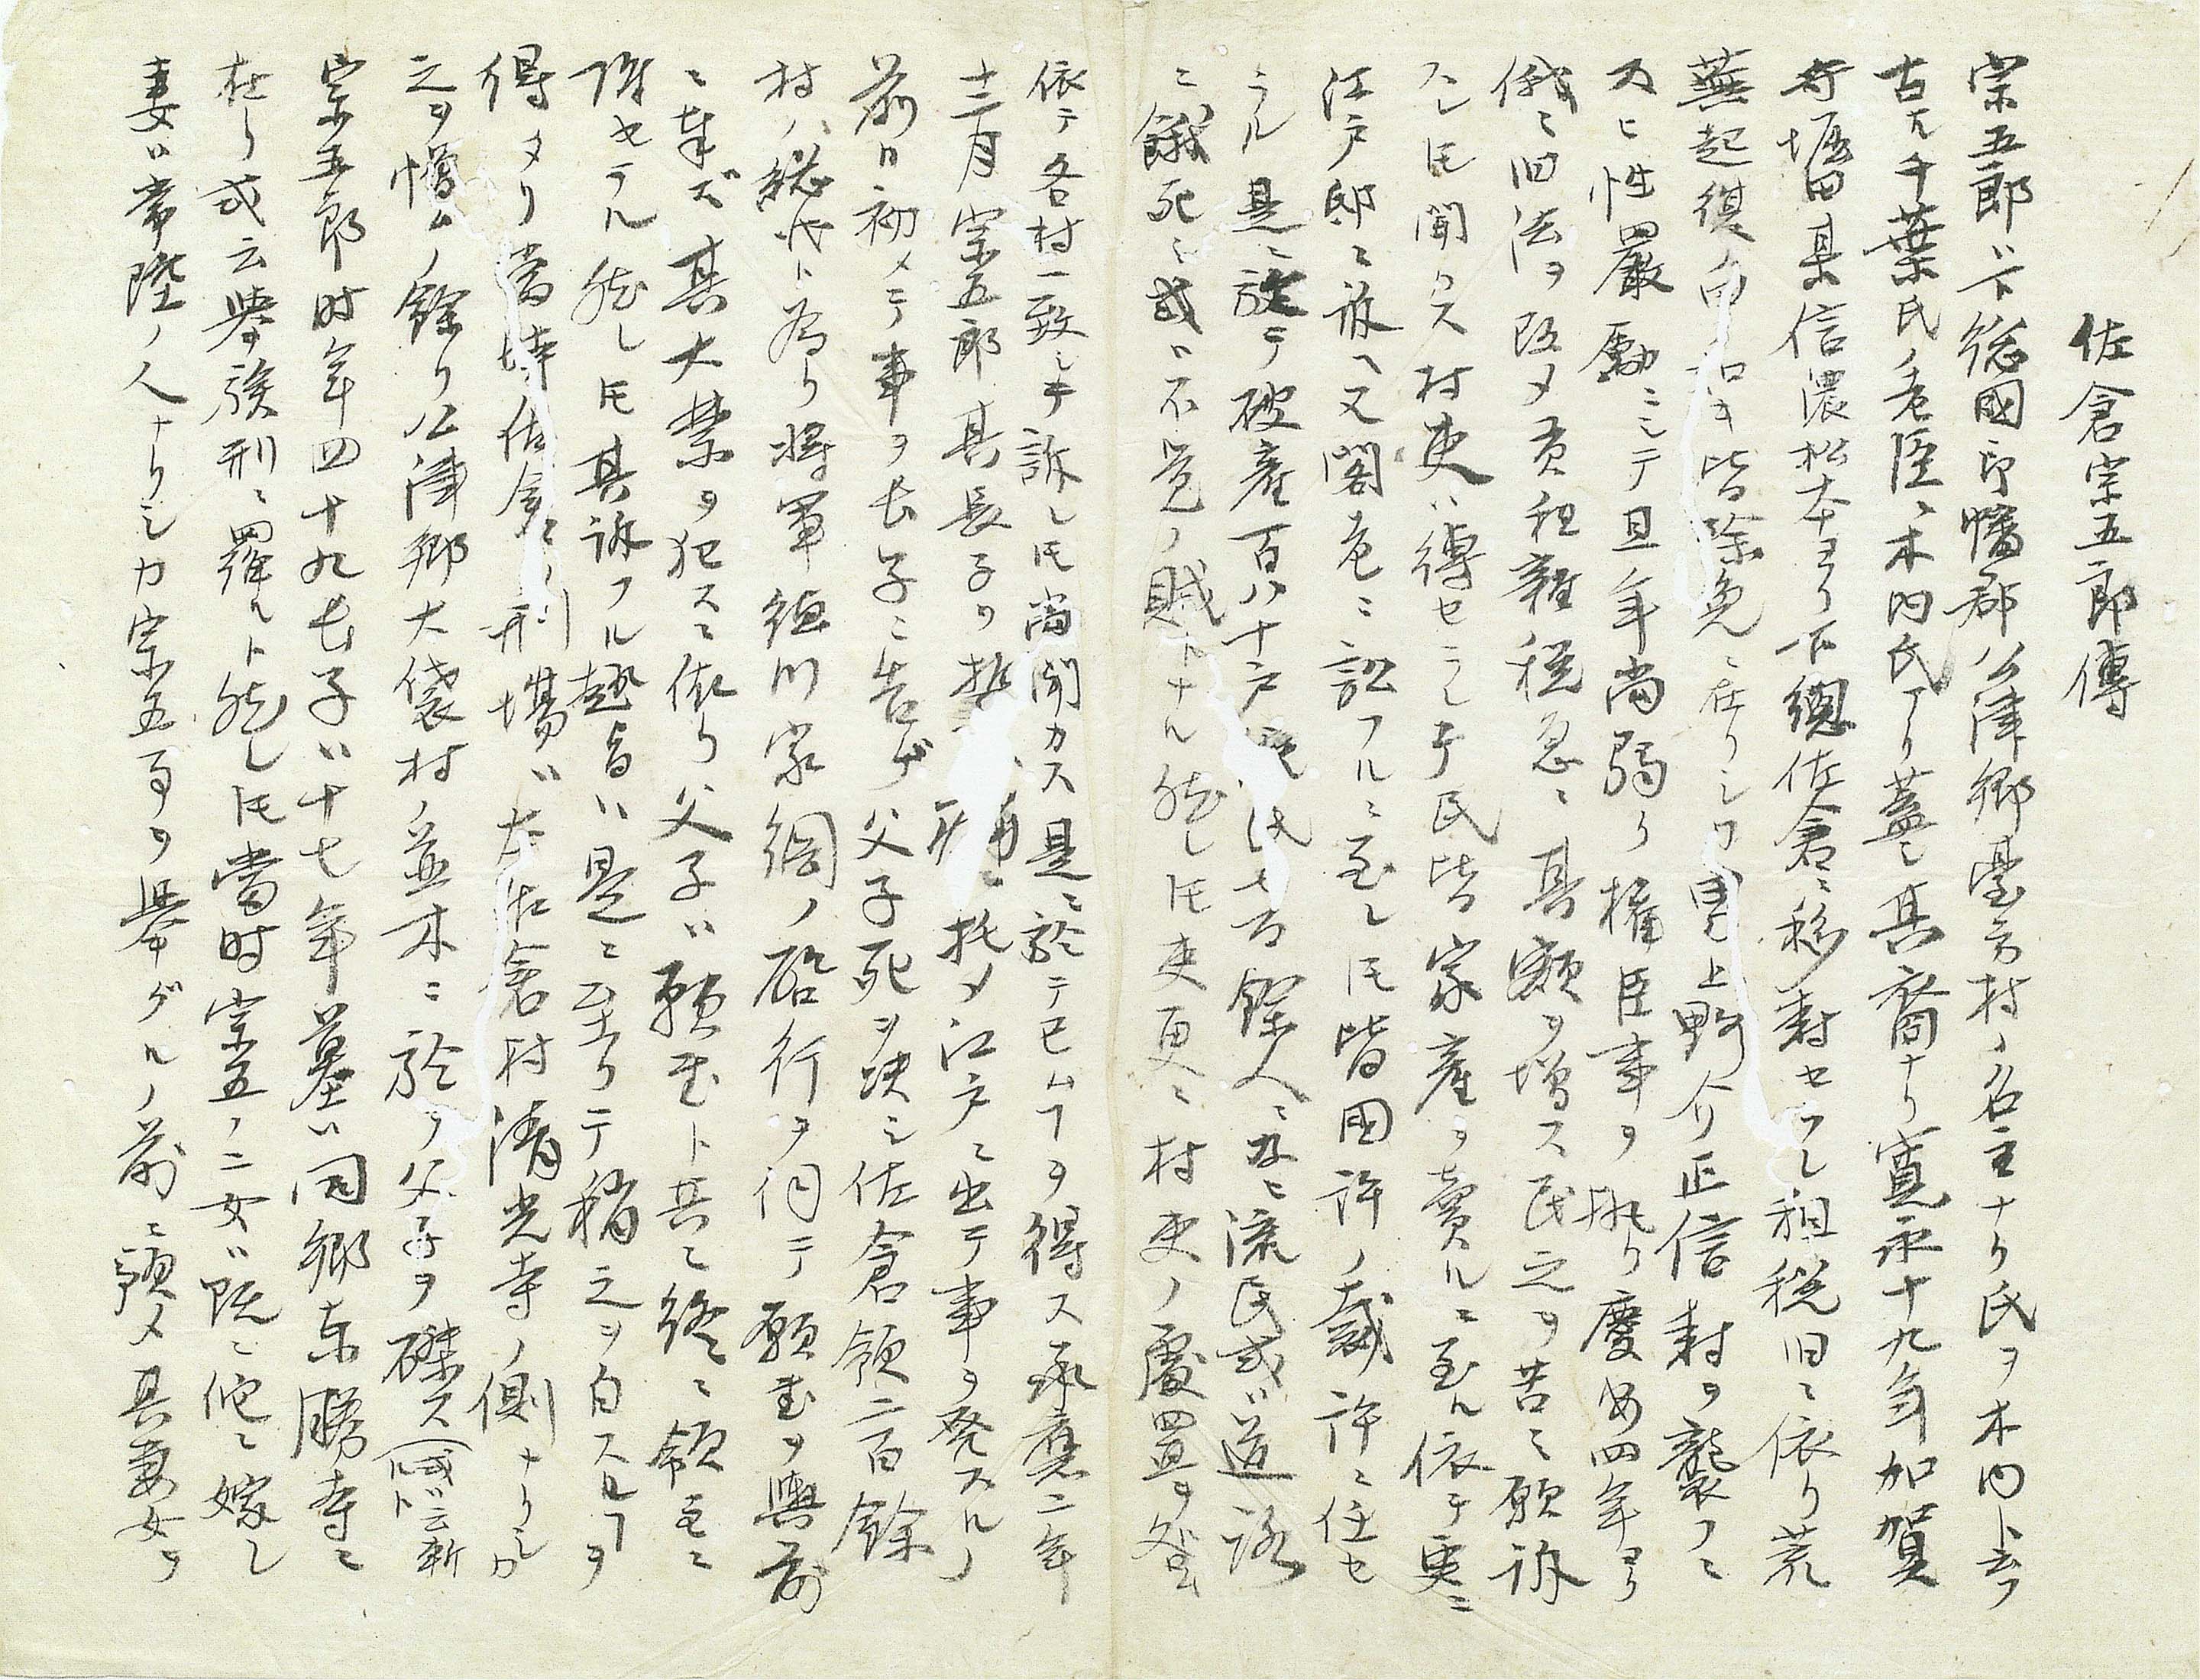 佐倉宗五郎傳
宗五郎ハ下総國印幡郡公津郷臺方村ノ名主ナリ氏ヲ木内ト云フ
古ヘ千葉氏ノ老臣ニ木内氏アリ蓋シ其裔ナリ寛永十九年加賀
守堀田某信濃松本ヨリ下總佐倉ニ移封セラレ租税旧ニ依リ荒
蕪起復ノ田 皆除免ニ在リシヲ男上野介正信封ヲ襲フニ
及ヒ性嚴勵ニシテ且年尚弱り権臣事ヲ執り慶安四年ヨリ
俄ニ旧法ヲ改メ貢租雜税急ニ其額ヲ増ス民之ヲ苦ミ願訴
スレ𪜈聞カス村吏ハ縛セラレテ民皆家産ヲ賣ルニ至ル依テ更ニ
江戸邸ニ訴ヘ又閣老ニ訟フルニ至レ𪜈皆国許ノ裁許ニ任セ
ラル是ニ於テ破産百八十戸 民七百餘人ニ及ヒ流民或ハ道路
ニ餓死シ或ハ不覚ノ賊トナル然レ𪜈吏更ニ村吏ノ處置ヲ
依テ各村一致シテ訴レ𪜈尚聞カス是ニ於テ已ムヿヲ得ス承應二年
十二月宗五郎其長子ヲ 托メ江戸ニ出テ事ヲ発スルノ
前日初メテ事ヲ長子ニ告ゲ父子死ヲ決シ佐倉領二百餘
村ノ総代ト為リ将軍徳川家綱ノ啓行ヲ伺テ願書ヲ輿前
ニ奉ズ其大禁ヲ犯スニ依リ父子ハ願書ト共ニ終ニ領主ニ
降セラル然レ𪜈其訴フル趣旨ハ是ニ至リテ稍之ヲ白スルヿヲ
得タリ當時佐倉ノ刑場ハ本佐倉村清光寺ノ側ナリシカ
之ヲ憎ムノ餘り公津郷大袋村ノ並木ニ於テ父子ヲ磔ス（或ハ云斬ルト
宗五郎時年四十九長子ハ十七年墓ハ同郷東勝寺ニ
在り或云擧族刑ニ羅ルト然レ𪜈當時宗五ノ二女ハ既ニ他ニ嫁シ
妻ハ常陸ノ人ナリシカ宗五事ヲ擧ゲルノ前ニ預メ其妻女ヲ